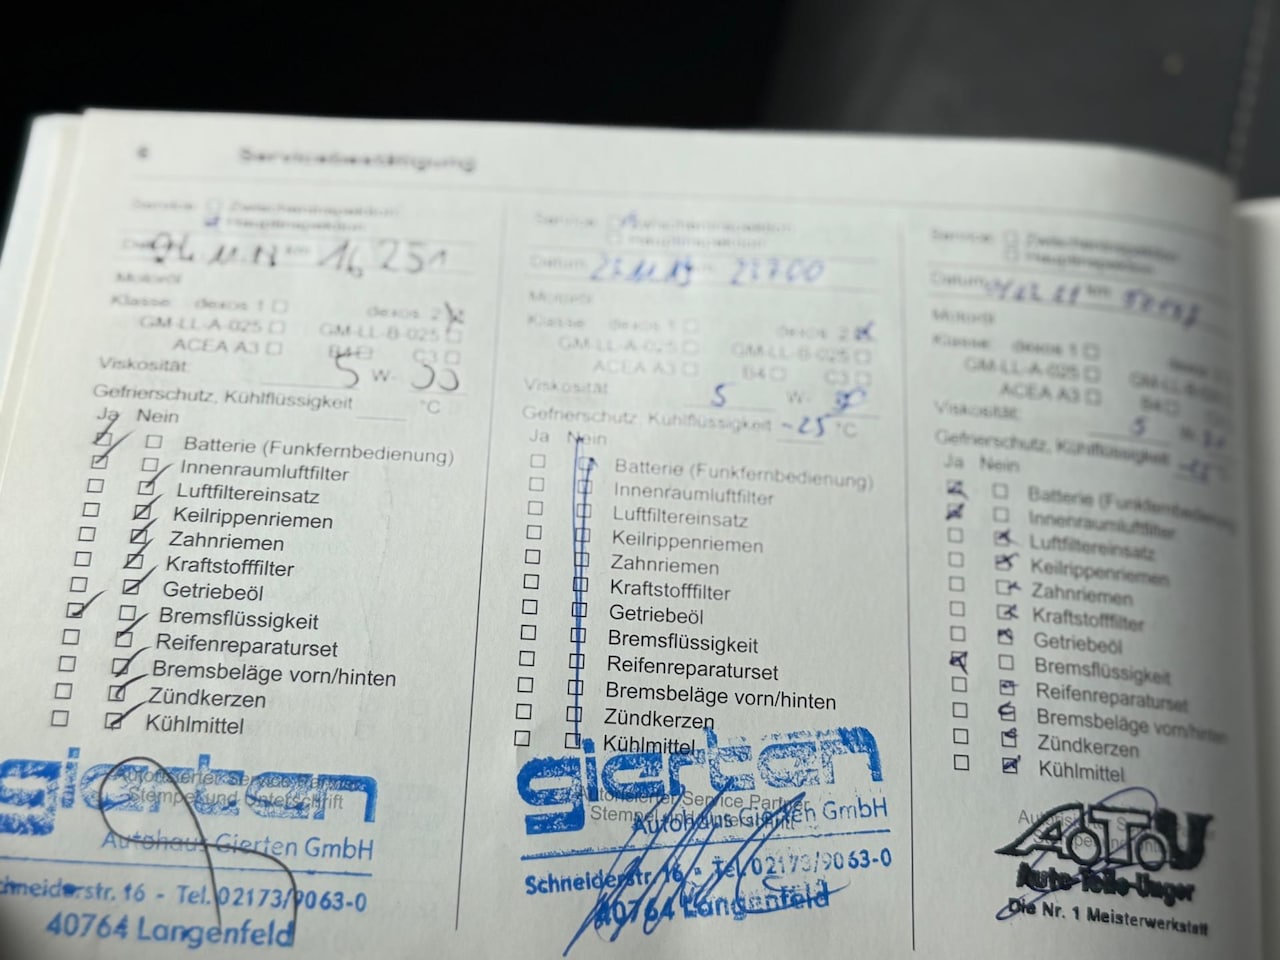 6 Servicebestätigung
Service: Zwischeninspektion
Hauptinspektion
16 251
Motoröl
Klasse: dexos 1 dexos 2
GM-LL-A-025 GM-LL-B-025
ACEA A3 B4 C3
Viskosität: 5 W-
Gefrierschutz, Kühlflüssigkeit °C
Ja Nein
Batterie (Funkfernbedienung)
Innenraumluftfilter
Luftfiltereinsatz
Keilrippenriemen
Zahnriemen
Kraftstofffilter
Getriebeöl
Bremsflüssigkeit
Reifenreparaturset
Bremsbeläge vorn/hinten
Zündkerzen
Kühlmittel
Autorisierter Service Partner
Stempel und Unterschrift
gierten
Autohaus Gierten GmbH
chneiderstr. 16 - Tel. 02173/9063-0
40764 Langenfeld
Service: Zwischeninspektion
Hauptinspektion
Datum
Motoröl
Klasse: dexos 1 dexos 2
GM-LL-A-025 GM-LL-B-025
ACEA A3 B4 C3
Viskosität 5 W-
Gefrierschutz, Kühlflüssigkeit -25 °C
Ja Nein
Batterie (Funkfernbedienung)
Innenraumluftfilter
Luftfiltereinsatz
Keilrippenriemen
Zahnriemen
Kraftstofffilter
Getriebeöl
Bremsflüssigkeit
Reifenreparaturset
Bremsbeläge vorn/hinten
Zündkerzen
Kühlmittel
Autorisierter Service Partner
Stempel und Unterschrift
gierten
Autohaus Gierten GmbH
Schneiderstr. 16 - Tel. 02173/9063-0
40764 Langenfeld
Service: Zwischeninspektion
Hauptinspektion
Datum km
Motoröl
Klasse: dexos 1
GM-LL-A-025
ACEA A3 B4
Viskosität: 5 W-
Gefrierschutz, Kühlflüssigkeit
Ja Nein
Batterie (Funkfernbedienung
Innenraumluftfilter
Luftfiltereinsatz
Keilrippenriemen
Zahnriemen
Kraftstofffilter
Getriebeöl
Bremsflüssigkeit
Reifenreparaturset
Bremsbeläge vorn/hinten
Zündkerzen
Kühlmittel
A.T.U
Auto-Teile-Unger
Die Nr. 1 Meisterwerkstatt